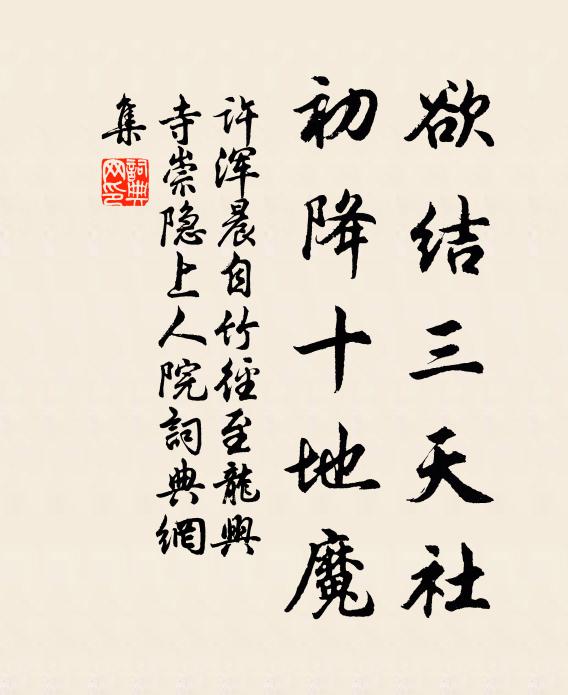 欲结三天社
初降十地魔
许浑晨自竹径至龍興
寺崇隐上人院詞典網
集
詞典
网印